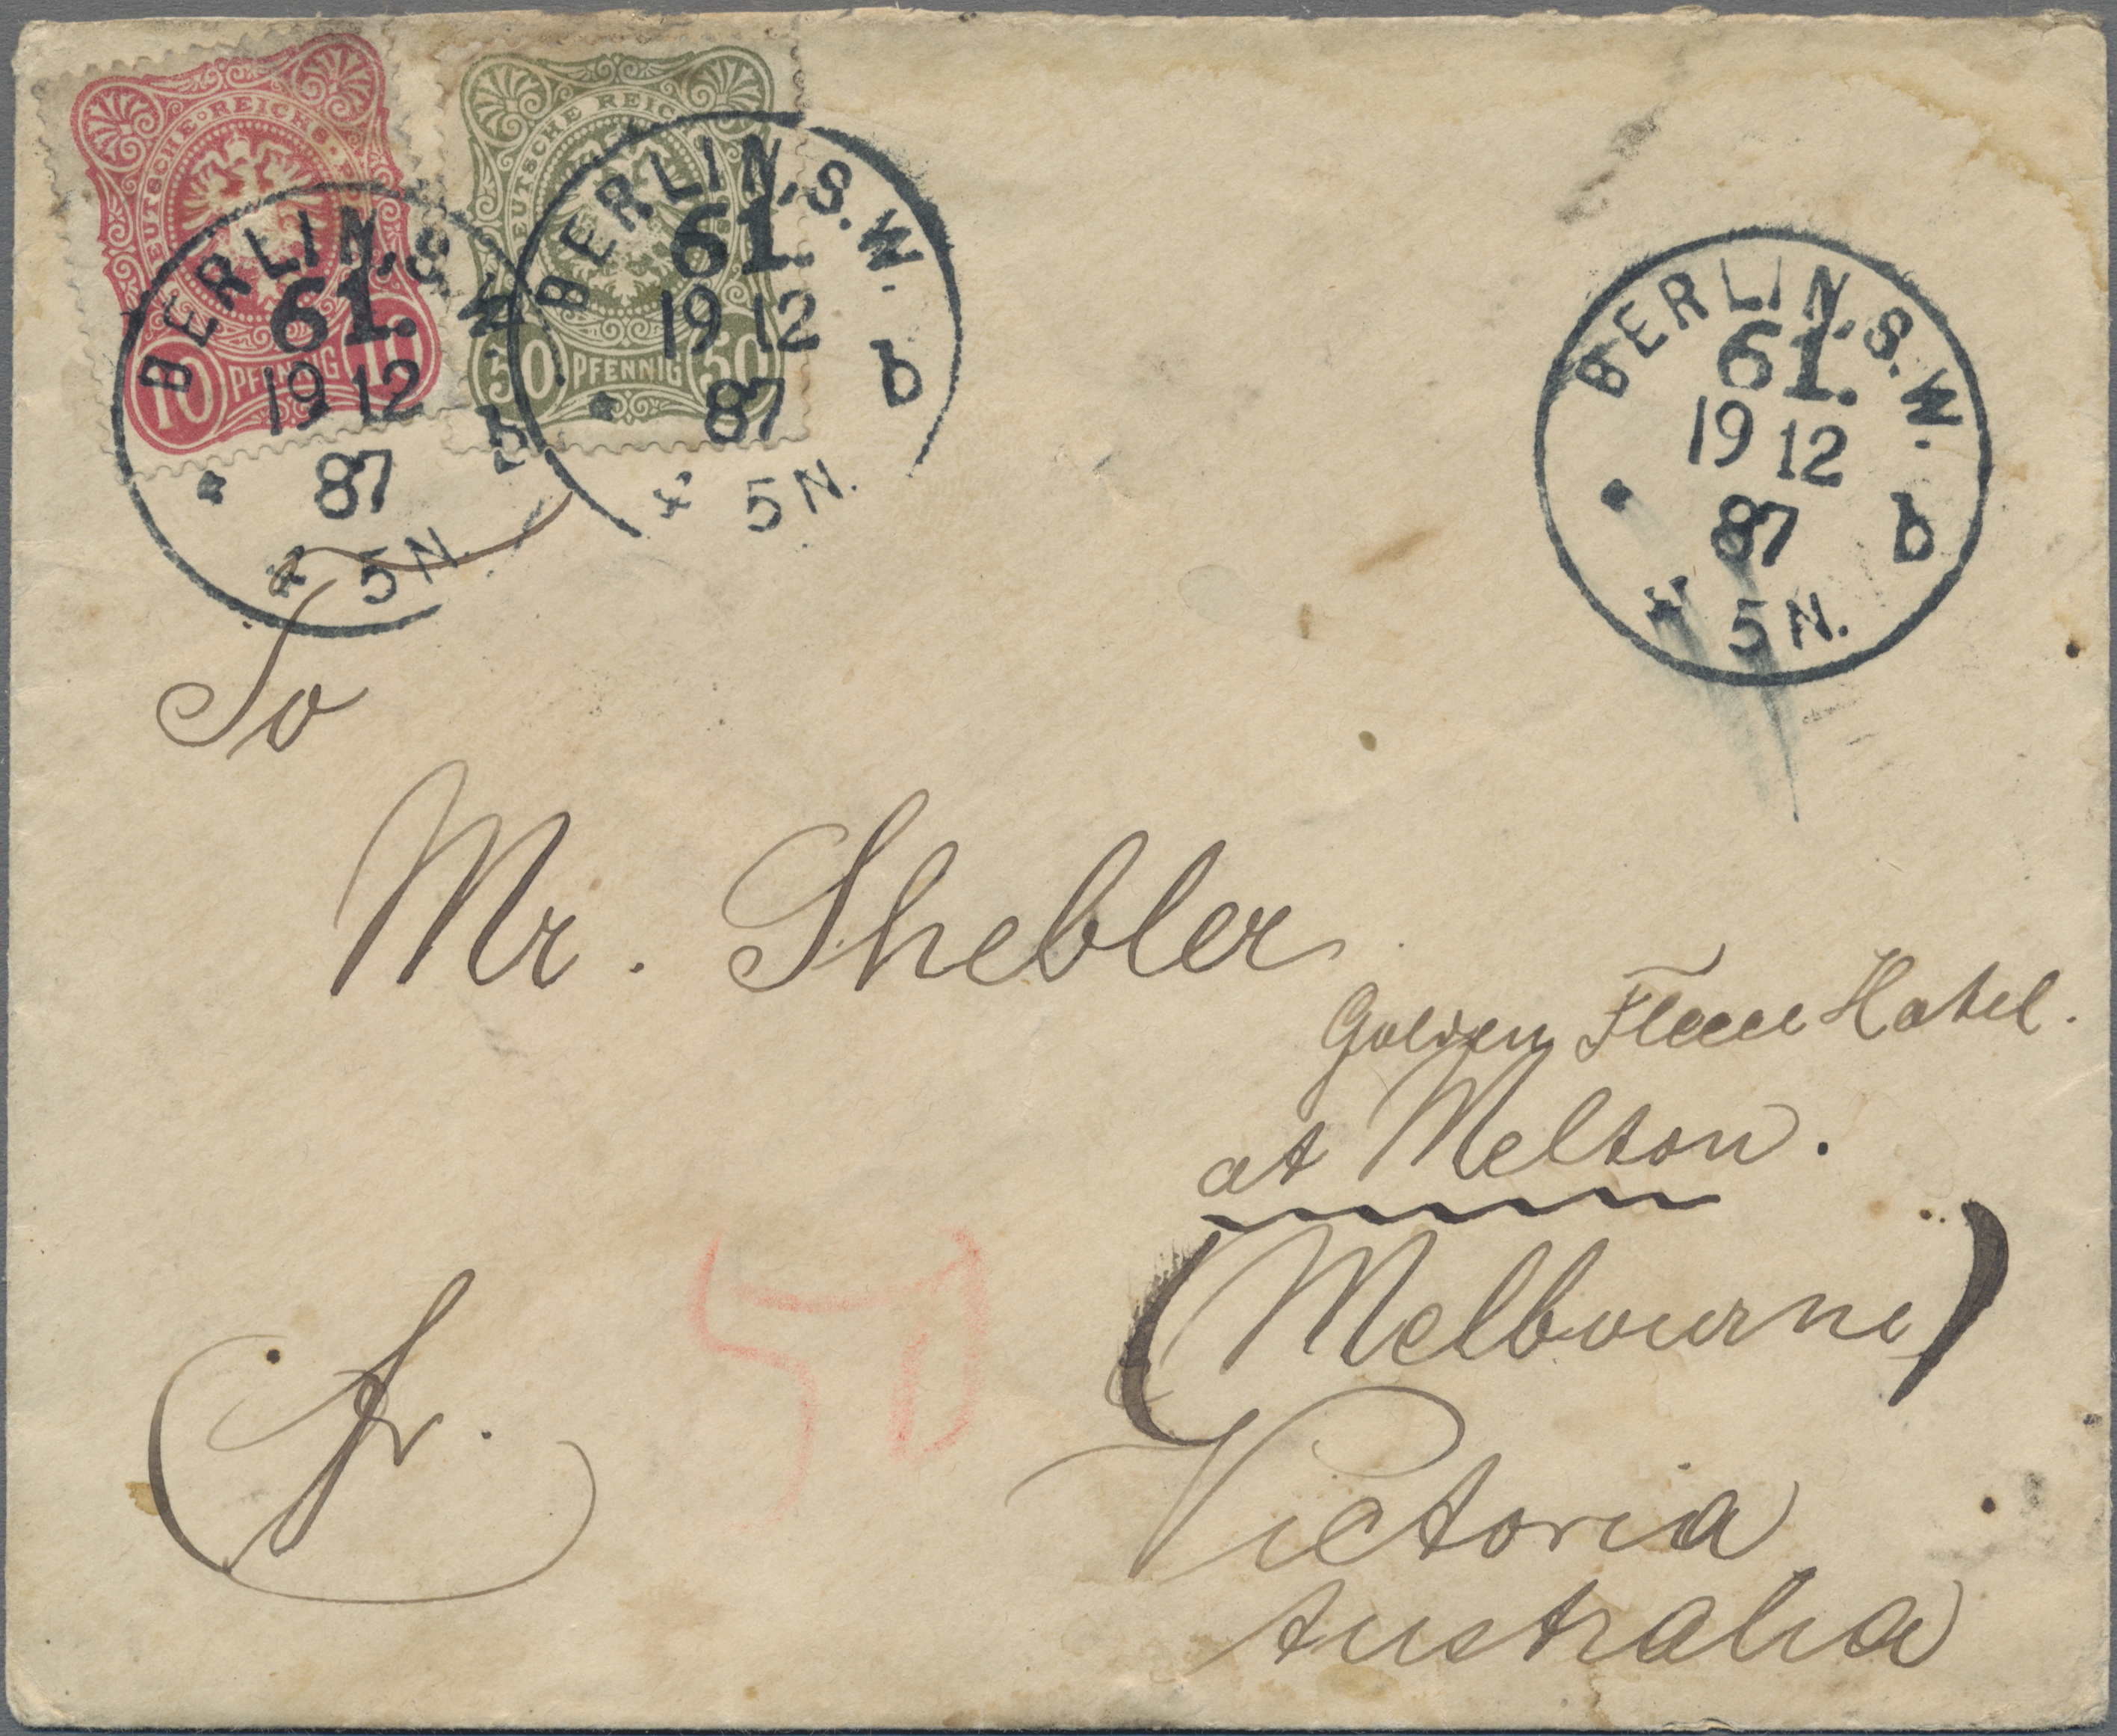 DEUTSCHE REICHS
10 PFENNIG 10
DEUTSCHE REICHS
50 PFENNIG 50
BERLIN, S.W.
61.
19 12
87
* 5N.
b
BERLIN, S.W.
61.
19 12
87
* 5N.
b
BERLIN, S.W.
61.
19 12
87
* 5N.
b
To
Mr. Shebler
Golden Fleece Hotel.
at Melton.
(Melbourne)
Victoria
Australia
fr.
50